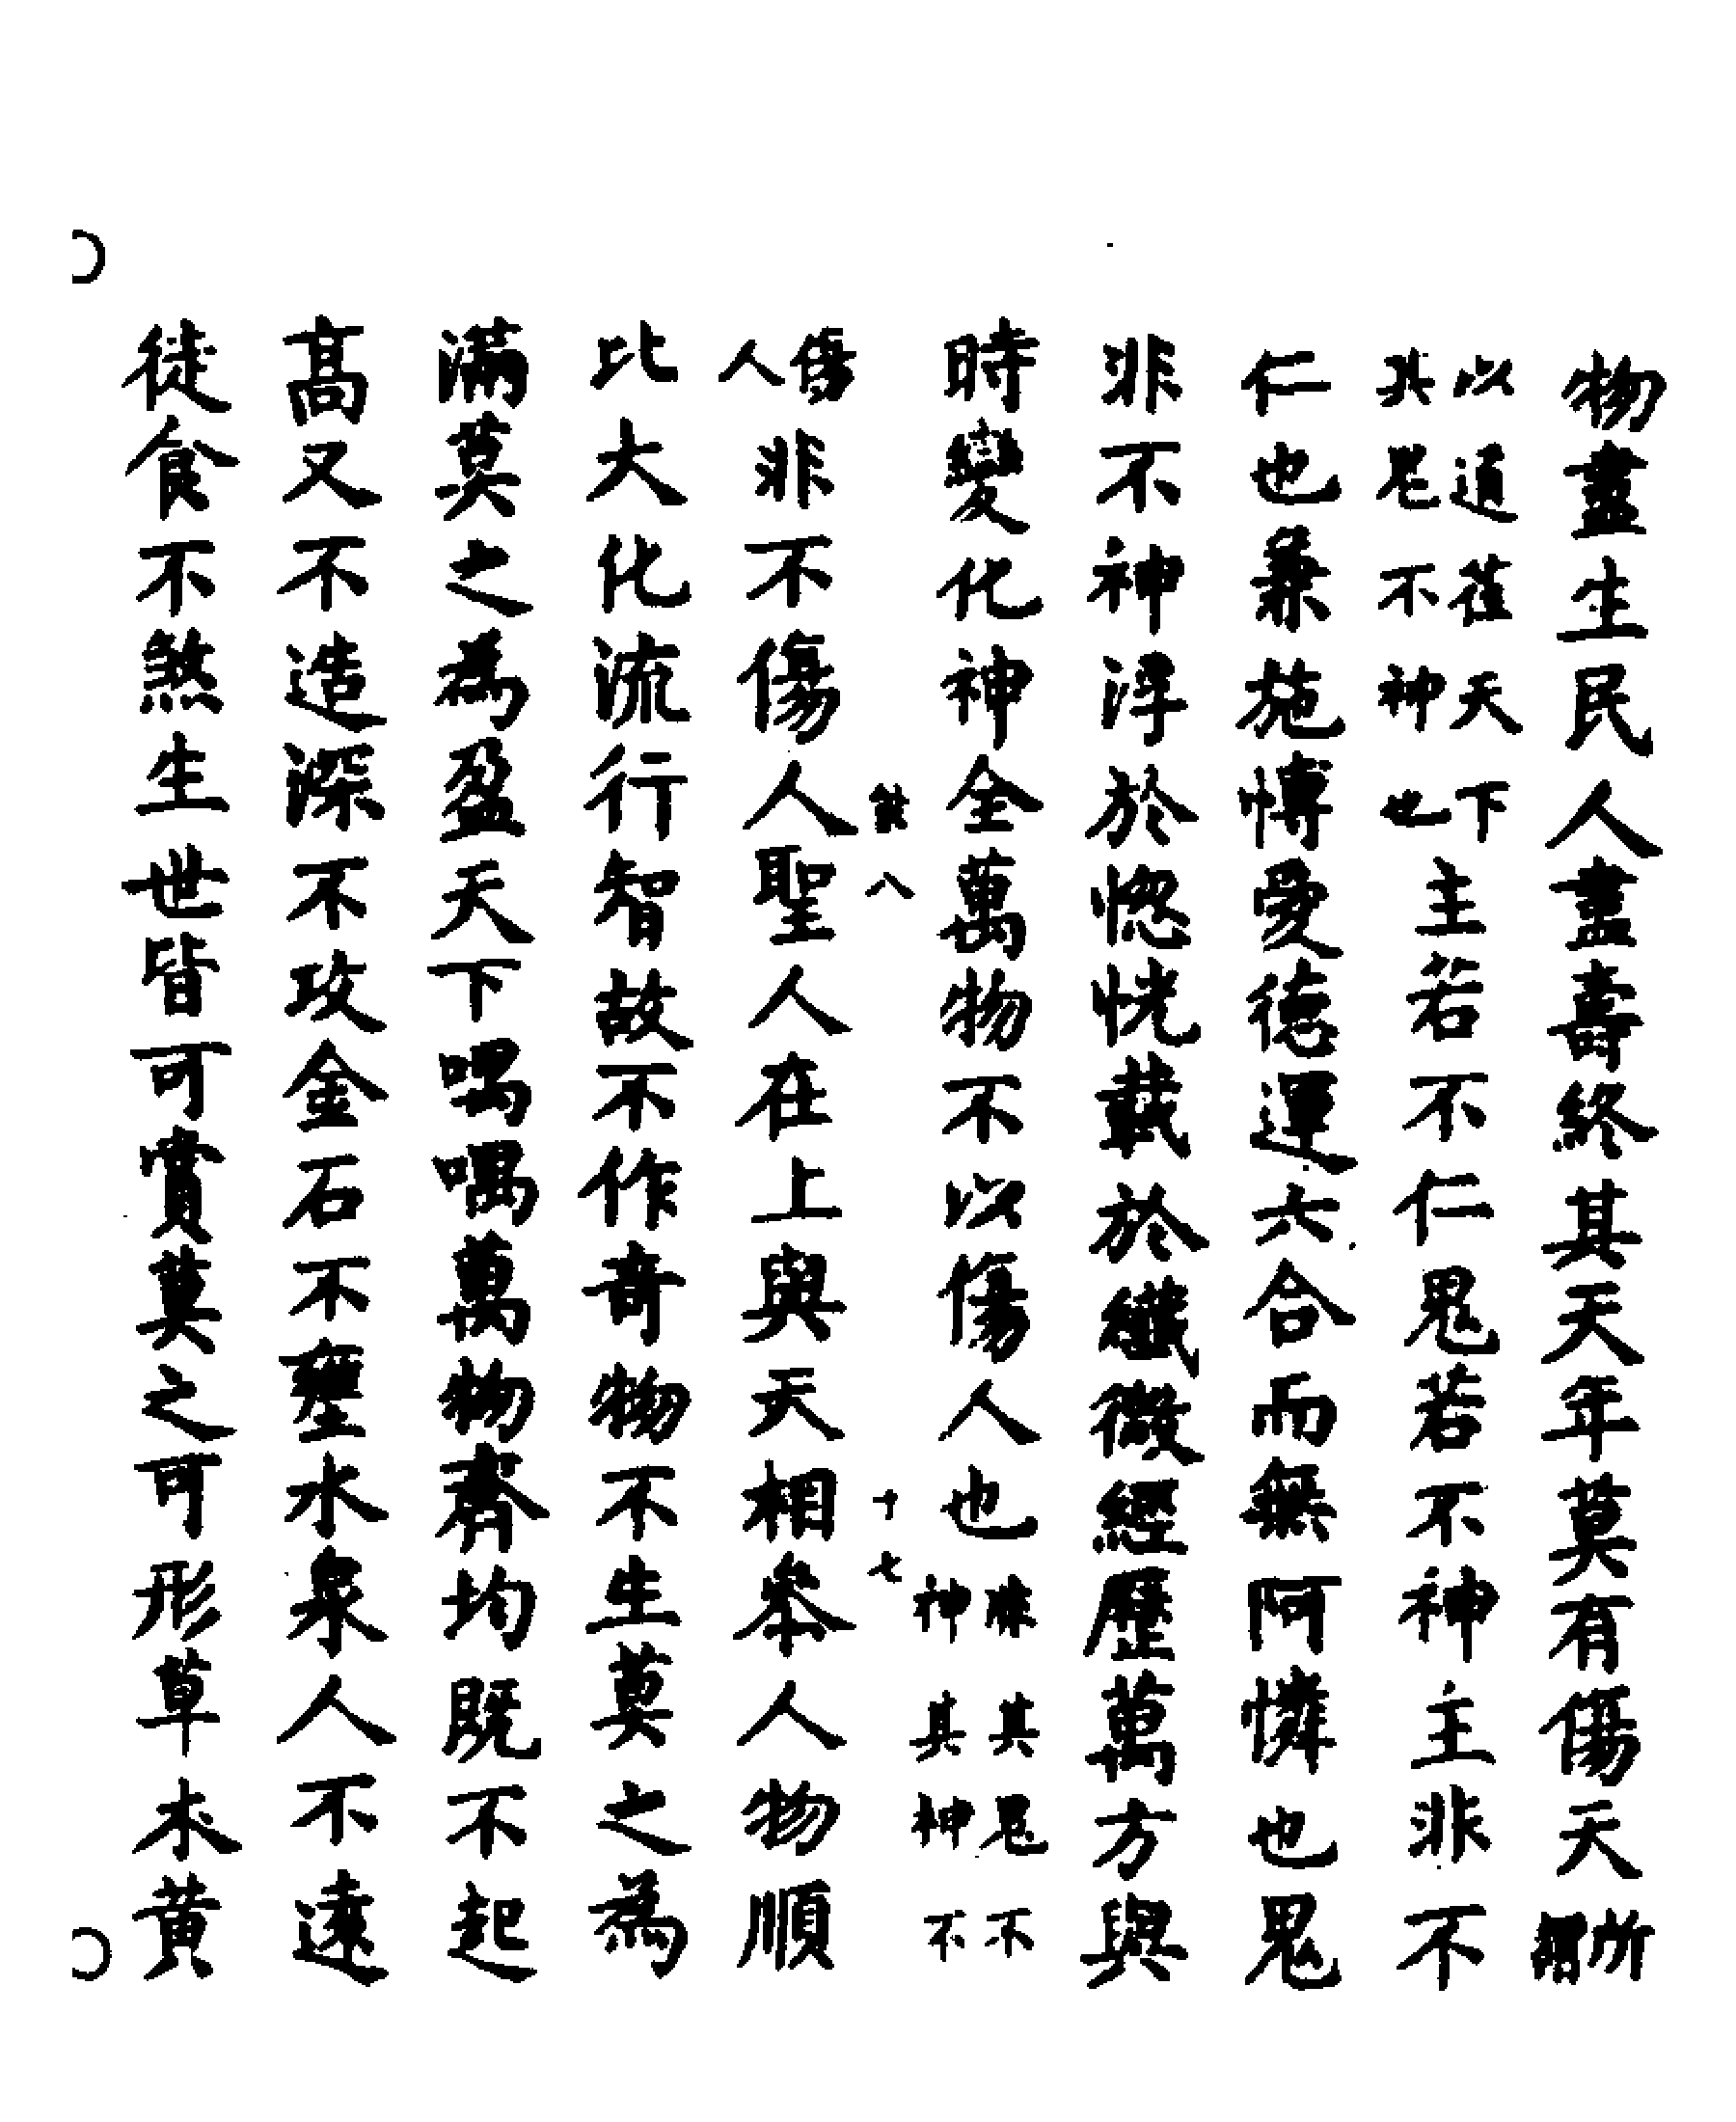 物盡生民人盡壽終其天年莫有傷夭所謂
以道莅天下其鬼不神也主若不仁鬼若不神主非不
仁也兼施博愛德運六合而無阿憐也鬼
非不神浮於惚恍載於纖微經歷萬方與
時變化神全萬物不以傷人也非其鬼不神其神不
能八 十七
傷人非不傷人聖人在上與天相叅人物順
比大化流行智故不作奇物不生莫之為
滿莫之為盈天下喁喁萬物齊均既不起
高又不造深不攻金石不壅水泉人不遠
徒食不煞生世皆可賞莫之可形草木黄